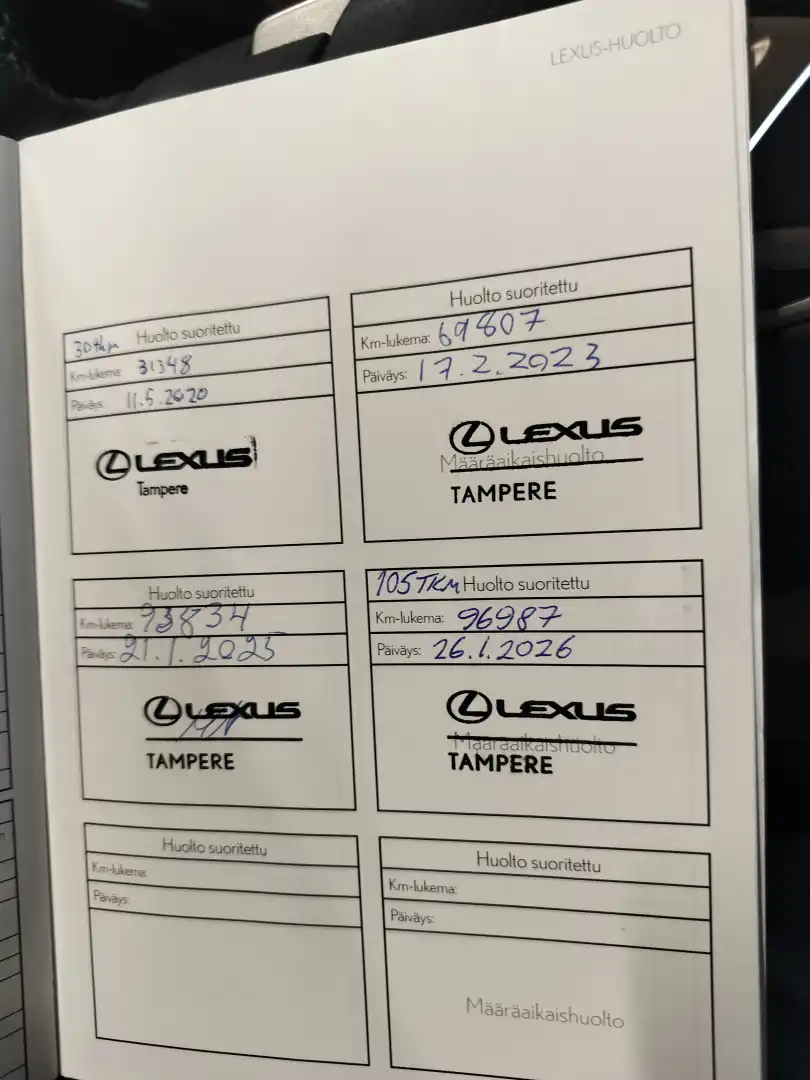 LEXUS-HUOLTO
30tkm Huolto suoritettu
Km-lukema: 31348
Päiväys: 11.5.2020
LEXUS
Tampere
Huolto suoritettu
Km-lukema: 69807
Päiväys: 17.2.2023
LEXUS
Määräaikaishuolto
TAMPERE
Huolto suoritettu
Km-lukema: 93834
Päiväys: 21.1.2025
LEXUS
TAMPERE
105TKM Huolto suoritettu
Km-lukema: 96987
Päiväys: 26.1.2026
LEXUS
Määräaikaishuolto
TAMPERE
Huolto suoritettu
Km-lukema:
Päiväys:
Huolto suoritettu
Km-lukema:
Päiväys:
Määräaikaishuolto